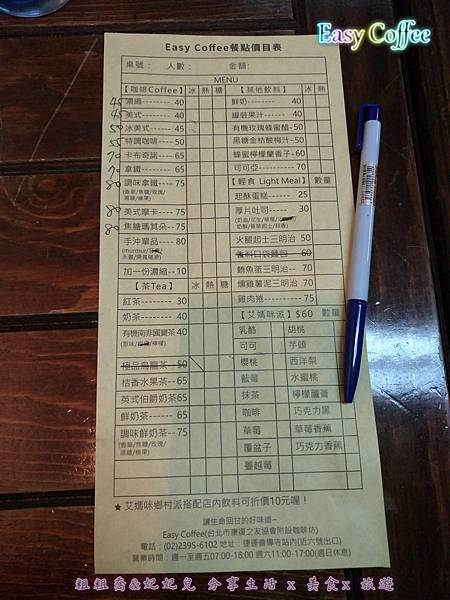 Easy Coffee
Easy Coffee餐點價目表
桌號: 人數: 金額:
MENU
【咖啡Coffee】 冰 熱 糖
45 濃縮-------- 40
45 美式-------- 40
50 冰美式------ 45
55 特調咖啡---- 50
70 卡布奇諾---- 65
70 拿鐵-------- 65
80 調味拿鐵---- 75
(香草/焦糖/玫瑰/
黑糖/榛果)
80 美式摩卡---- 75
80 焦糖瑪其朵-- 75
手沖單品---- 80
加一份濃縮-- 10
【茶Tea】 冰 熱 糖
紅茶-------- 30
奶茶-------- 40
有機南非國寶茶 40
極品烏龍茶-- 50
桔香水果茶-- 65
英式伯爵奶茶65
鮮奶茶------ 65
調味鮮奶茶-- 75
(香草/焦糖/玫瑰/
黑糖/榛果)
【其他飲料】 冰 熱
鮮奶-------- 40
罐裝果汁---- 40
有機玫瑰蜂蜜醋- 50
黑糖金桔酸梅汁- 50
蜂蜜檸檬蘭香子- 60
可可亞-------- 70
【輕食 Light Meal】 數量
起酥蛋糕------ 25
厚片吐司------ 30
火腿起士三明治 50
60
鮪魚蛋三明治-- 70
燻雞薯泥三明治 70
雞肉捲-------- 75
【艾媽咪派】$60 數量
乳酪 胡桃
可可 芋頭
櫻桃 西洋梨
藍莓 水蜜桃
抹茶 檸檬蘆薈
咖啡 巧克力黑
草莓 草莓香蕉
覆盆子 巧克力香蕉
蔓越莓
★艾媽咪鄉村派搭配店內飲料可折價10元喔!
讓生命回甘的好味道~
Easy Coffee(台北市康復之友協會附設咖啡坊)
電話:(02)2395-6102 地址:捷運善導寺站內(近六號出口)
營業時間:週一至週五07:00-18:00 週六11:00-17:00(週日休息)
粗粗喬&妃妃兒 分享生活 x 美食x 旅遊